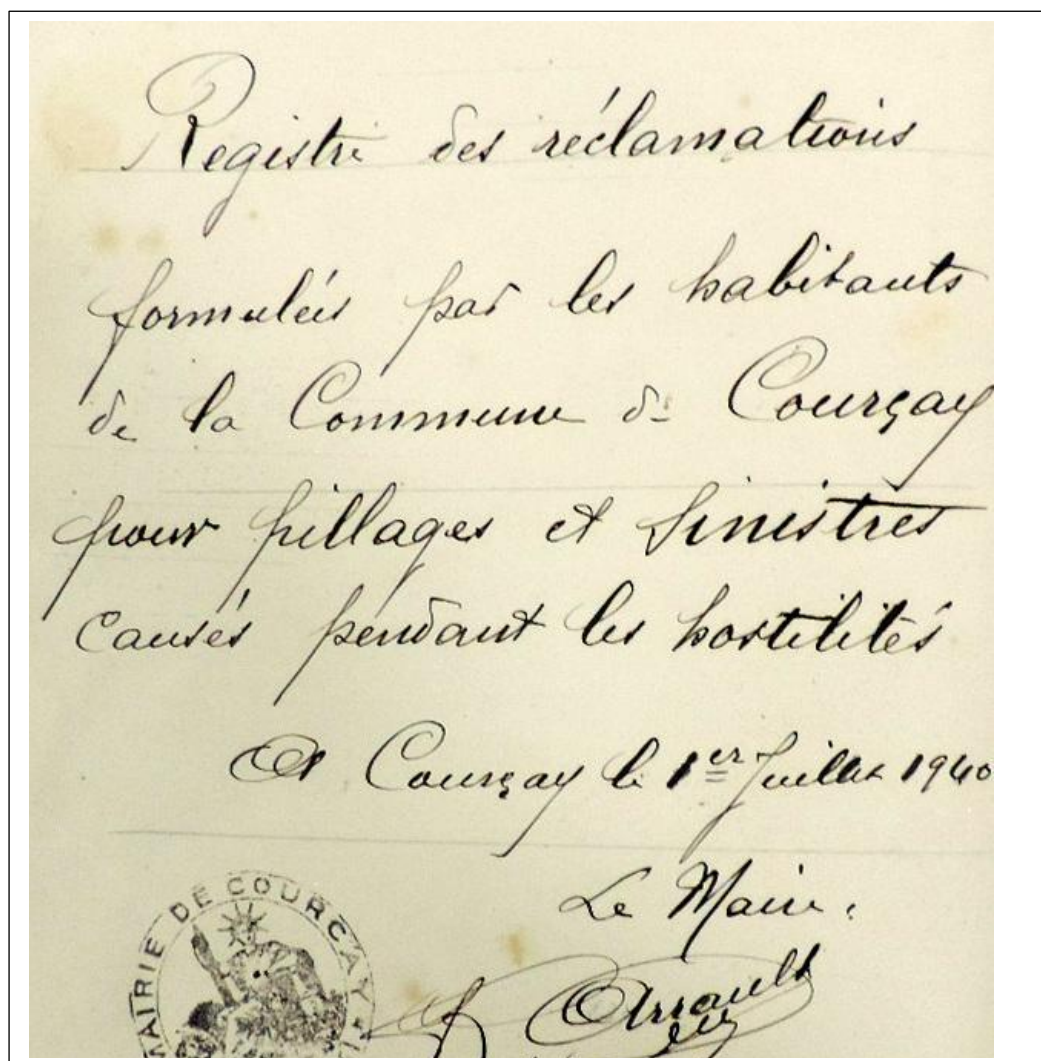 Registre des réclamations
formulées par les habitants
de la Commune de Courçay
pour pillages et Sinistres
causés pendant les hostilités
A Courçay le 1er Juillet 1940
Le Maire.
Arrault
MAIRIE DE COURÇAY